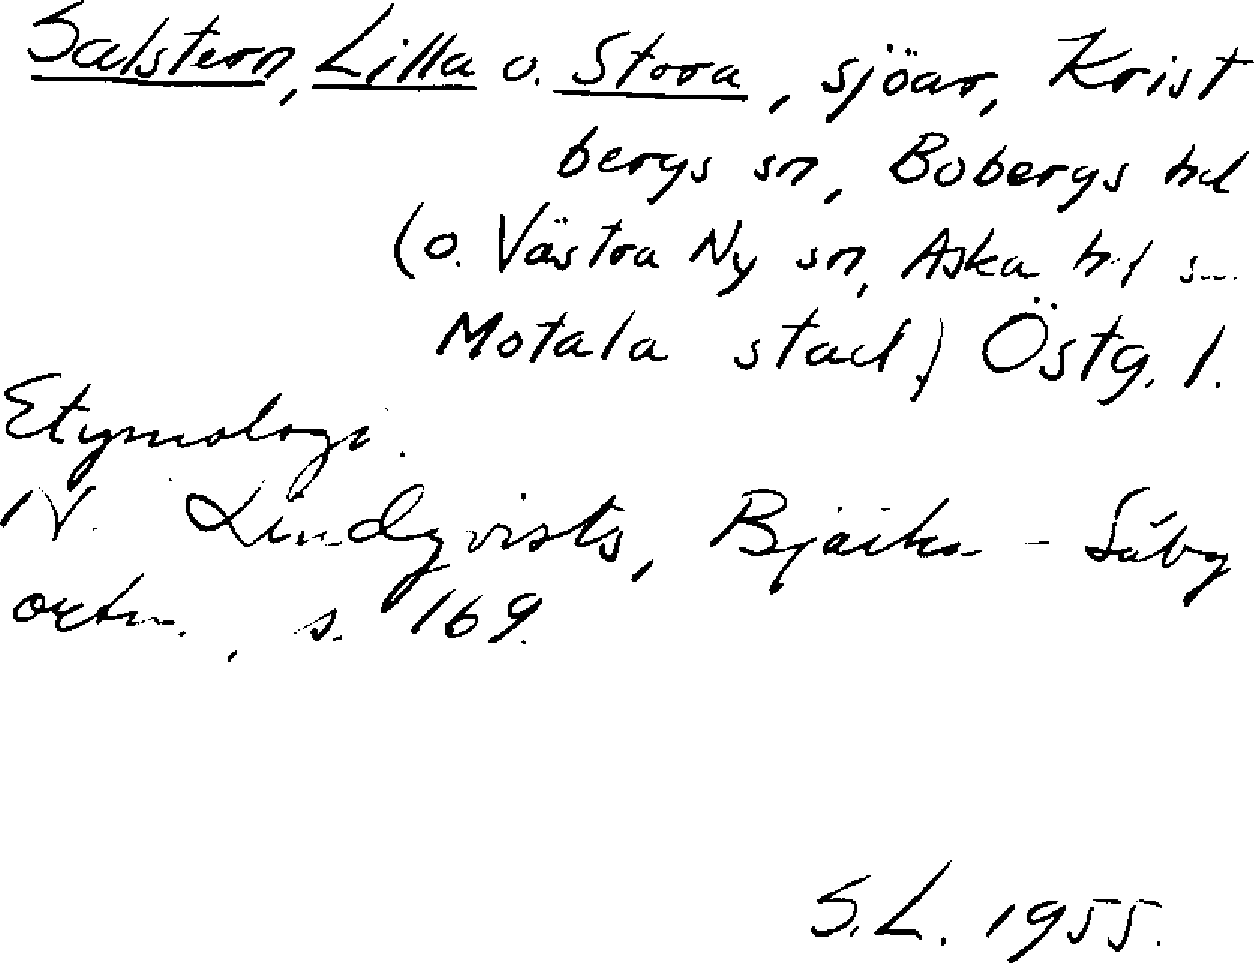 Salstern, Lilla o. Stora, sjöar, Krist
bergs sn, Bobergs hd
(o. Västra Ny sn, Aska hd
Motala stad) Östg. l.
Etymologi.
N. Lindqvists, Bjärka-Säby
ortn., s. 169.
S.L. 1955.